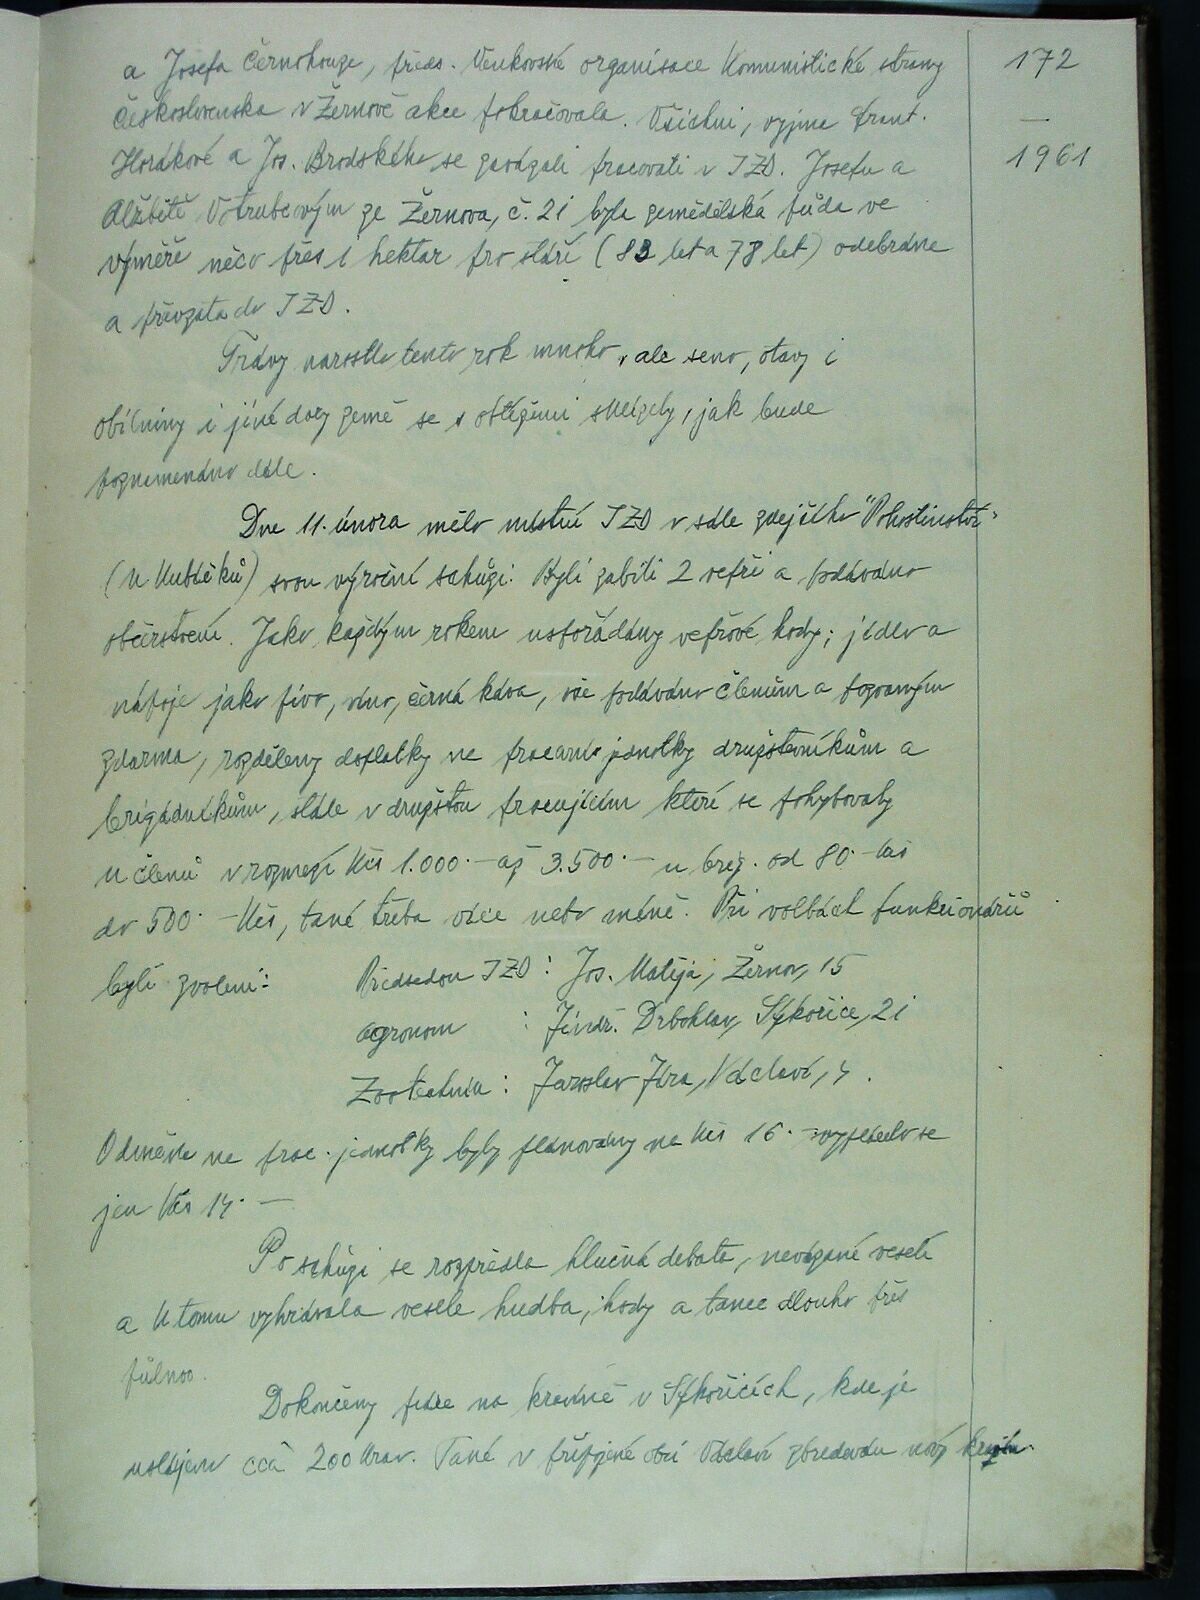 172
—
1961
a Josefa Černohouze, předs. Venkovské organisace Komunistické strany
Československa v Žernově akce pokračovala. Všichni, vyjma Frant.
Horákové a Jos. Brodského se zavázali pracovati v JZD. Josefu a
Alžbětě Votrubcovým ze Žernova, č. 21 byla zemědělská půda ve
výměře něco přes 1 hektar pro stáří (83 let a 78 let) odebrána
a převzata do JZD.
Trávy narostlo tento rok mnoho, ale seno, otavy i
obilniny i jiné dary země se s obtížemi sklízely, jak bude
poznamenáno dále.
Dne 11. února mělo místní JZD v sále zdejšího "Pohostinství"
(u Kubíčků) svou výroční schůzi. Byli zabiti 2 vepři a podáváno
občerstvení. Jako každým rokem uspořádány vepřové hody; jídlo a
nápoje jako pivo, víno, černá káva, vše podáváno členům a pozvaným
zdarma, rozděleny doplatky na pracovní jednotky družstevníkům a
brigádníkům, stále v družstvu pracujícím které se pohybovaly
u členů v rozmezí Kčs 1.000.— až 3.500.— u brig. od 80.— Kčs
do 500.— Kčs, také třeba více nebo méně. Při volbách funkcionářů
byli zvoleni: Předsedou JZD: Jos. Matěja, Žernov, 15
agronom : Jindř. Drbohlav, Sýkořice, 21
Zootechnik : Jaroslav Jíra, Václaví, 4.
Odměna na prac. jednotky byly plánovány na Kčs 16.— vyplatilo se
jen Kčs 14.—
Po schůzi se rozpředla hlučná debata, nevázané veselí
a k tomu vyhrávala vesele hudba, hody a tanec dlouho přes
půlnoc.
Dokončeny práce na kravíně v Sýkořicích, kde je
ustájeno cca 200 krav. Také v připojené obci Václaví zbudován nový kravín.